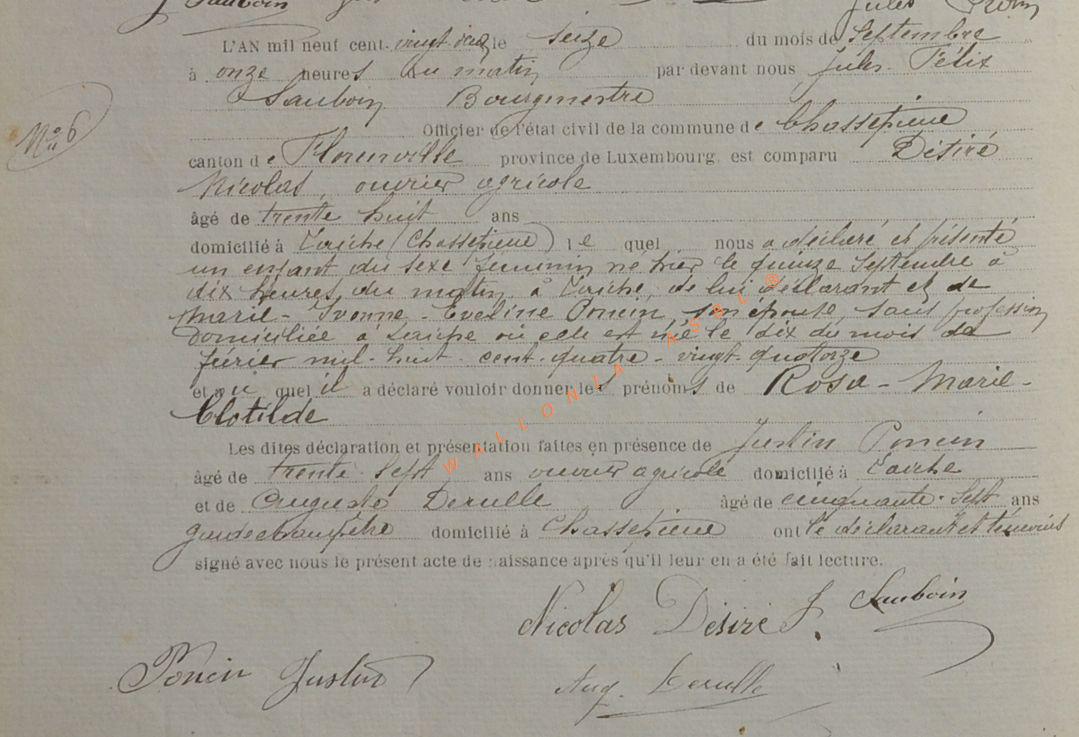 Sauboin Jules
L'AN mil neuf cent vingt deux le seize du mois de Septembre
à onze heures du matin par devant nous Jules Félix
Sauboin Bourgmestre
Officier de l'état civil de la commune de Chassepierre
N° 6
canton de Florenville province de Luxembourg est comparu Désiré
Nicolas, ouvrier agricole
âgé de trente huit ans
domicilié à Laiche (Chassepierre) lequel nous a déclaré et présenté
un enfant du sexe féminin né hier le quinze Septembre à
dix heures du matin à Laiche, de lui déclarant et de
Marie - Yvonne - Eveline Poncin, son épouse, sans profession
domiciliée à Laiche où elle est née le dix du mois de
février mil huit cent quatre-vingt-quatorze
et auquel il a déclaré vouloir donner les prénoms de Rosa - Marie -
Clotilde
Les dites déclaration et présentation faites en présence de Justin Poncin
âgé de trente sept ans ouvrier agricole domicilié à Laiche
et de Auguste Derulle âgé de cinquante-sept ans
garde champêtre domicilié à Chassepierre ont le déclarant et témoins
signé avec nous le présent acte de naissance après qu'il leur en a été fait lecture.
Nicolas Désiré J. Sauboin
Poncin Justin
Aug. Derulle
WALLONIA ASBL ©